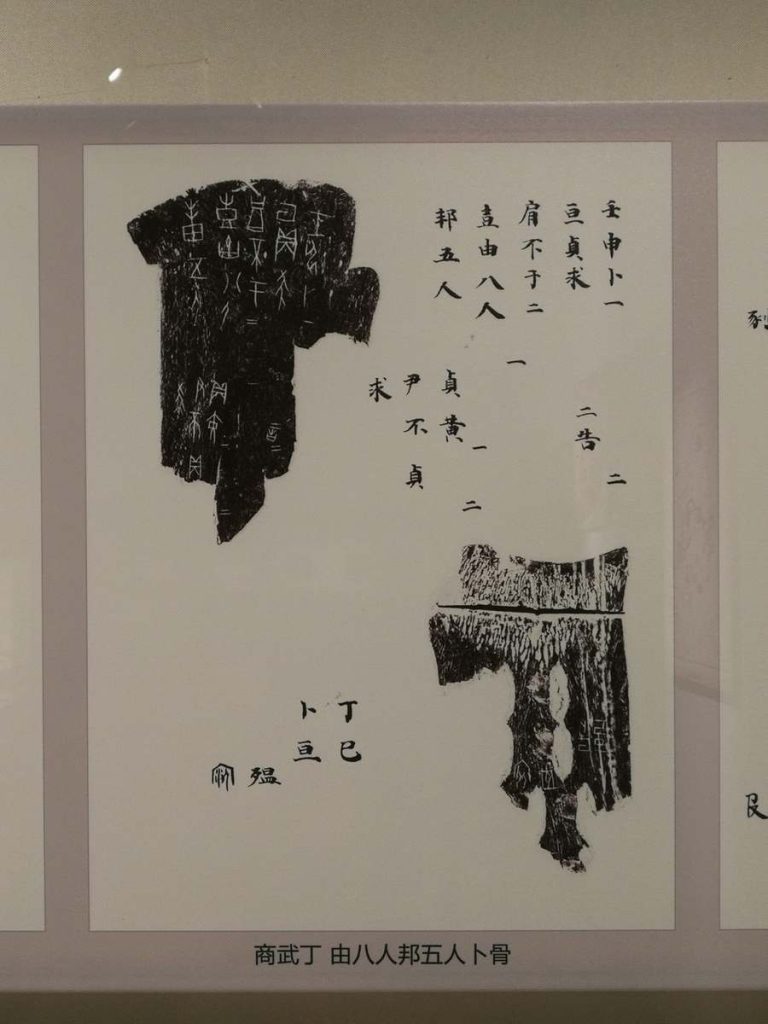 壬申卜一
亘貞求
肩不于二
壴由八人
邦五人
一
二告
二
貞黄
一
尹不貞
二
求
丁巳
卜亘
殟
商武丁 由八人邦五人卜骨